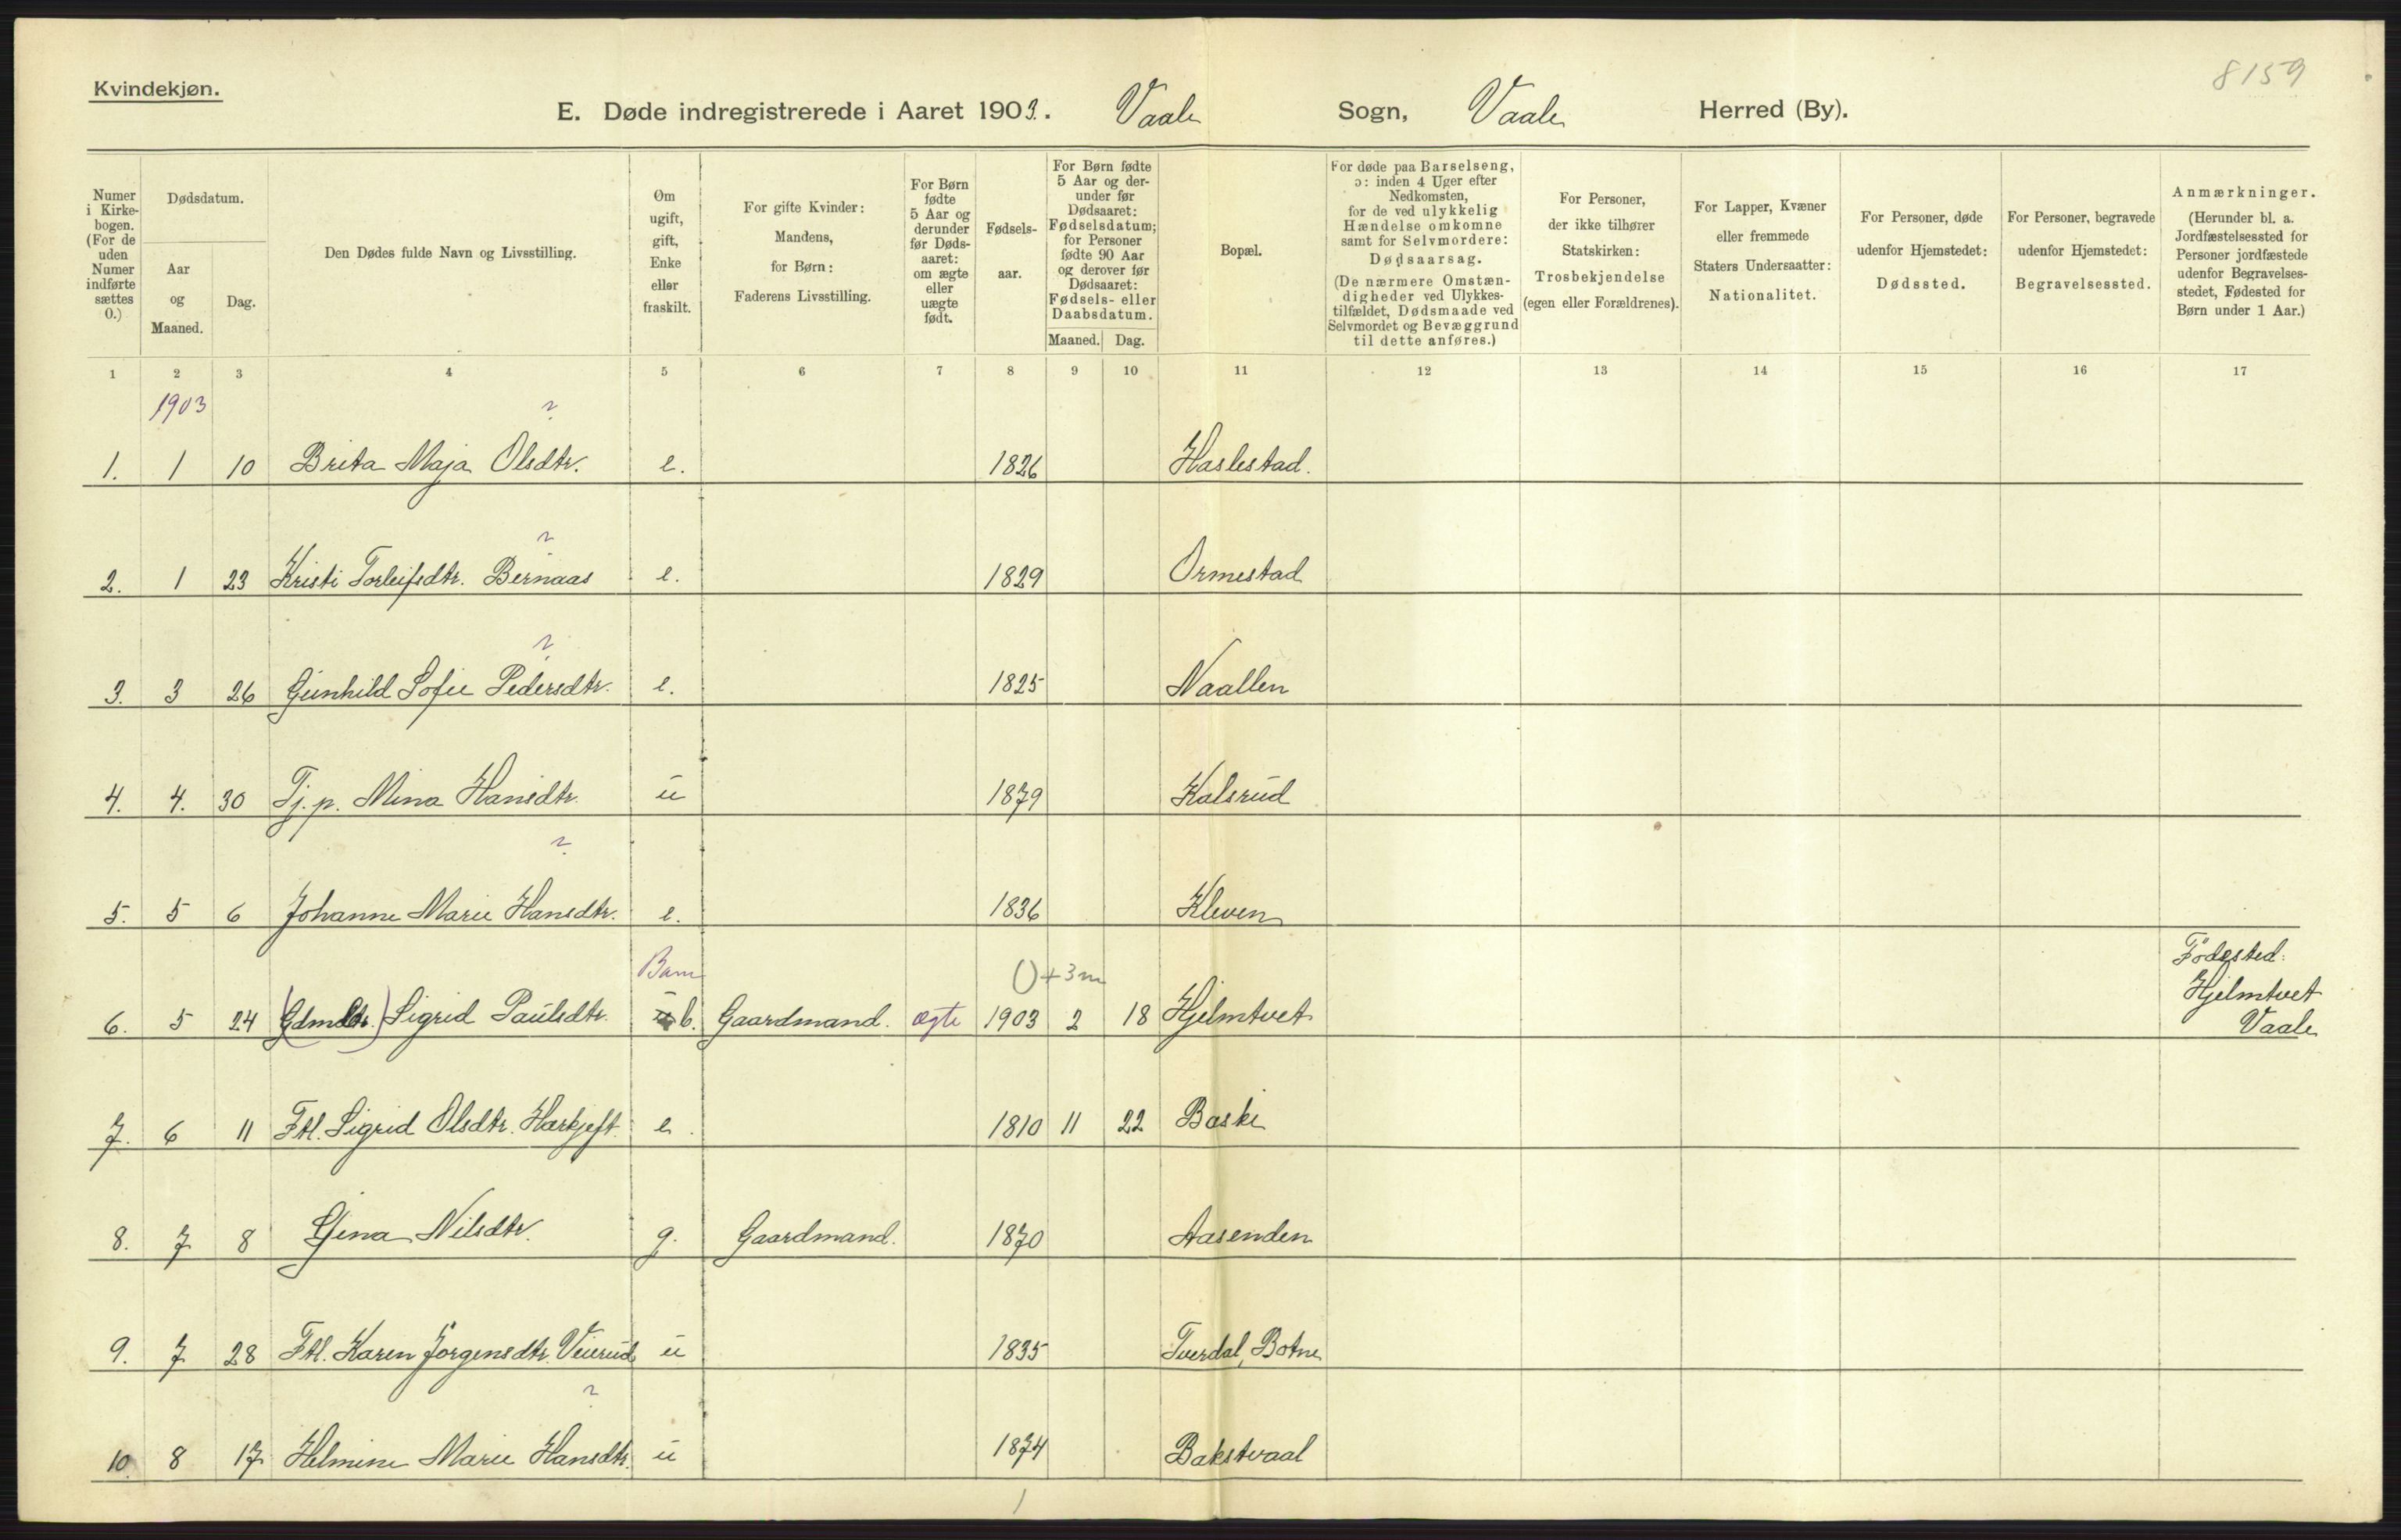 8159
Kvindekjøn.
E. Døde indregistrerede i Aaret 1903. Vaale Sogn, Vaale Herred (By).
Numer
i Kirke-
bogen.
(For de
uden
Numer
indførte
sættes
0.)
Dødsdatum.
Aar
og
Maaned.
Dag.
Den Dødes fulde Navn og Livsstilling.
Om
ugift,
gift,
Enke
eller
fraskilt.
For gifte Kvinder:
Mandens,
for Børn:
Faderens Livsstilling.
For Børn
fødte
5 Aar og
derunder
før Døds-
aaret:
om ægte
eller
uægte
født.
Fødsels-
aar.
For Børn fødte
5 Aar og der-
under før
Dødsaaret:
Fødselsdatum;
for Personer
fødte 90 Aar
og derover før
Dødsaaret:
Fødsels- eller
Daabsdatum.
Maaned. Dag.
Bopæl.
For døde paa Barselseng,
ɔ: inden 4 Uger efter
Nedkomsten,
for de ved ulykkelig
Hændelse omkomne
samt for Selvmordere:
Dødsaarsag.
(De nærmere Omstæn-
digheder ved Ulykkes-
tilfældet, Dødsmaade ved
Selvmordet og Bevæggrund
til dette anføres.)
For Personer,
der ikke tilhører
Statskirken:
Trosbekjendelse
(egen eller Forældrenes).
For Lapper, Kvæner
eller fremmede
Staters Undersaatter:
Nationalitet.
For Personer, døde
udenfor Hjemstedet:
Dødssted.
For Personer, begravede
udenfor Hjemstedet:
Begravelsessted.
Anmærkninger.
(Herunder bl. a.
Jordfæstelsessted for
Personer jordfæstede
udenfor Begravelses-
stedet, Fødested for
Børn under 1 Aar.)
1 2 3 4 5 6 7 8 9 10 11 12 13 14 15 16 17
1903
?
1. 1 10 Brita Maja Olsdtr. e. 1826 Haslestad.
?
2. 1 23 Kristi Torleifsdtr. Bernaas e. 1829 Ormestad
?
3. 3 26 Gunhild Sofie Pedersdtr. e. 1825 Naallen
4. 4. 30 Tj. p. Mina Hansdtr. u 1879 Kalsrud
?
5. 5 6 Johanne Marie Hansdtr. e. 1836 Kleven
Barn () + 3 m Födested:
Hjelmtvet
6. 5 24 Sigrid Paulsdtr. b. Gaardmand. ægte 1903 2 18 Hjelmtvet Vaale
7. 6 11 Ftl. Sigrid Olsdtr. e. 1810 11 22 Baski
8. 7 8 Gina Nilsdtr. g. Gaardmand. 1870 Aasenden
9. 7 28 Ftl. Karen Jörgensdtr. Veierud u 1835 Tverdal, Botne
?
10. 8 17 Helmine Marie Hansdtr. u 1874 Bakstvaal